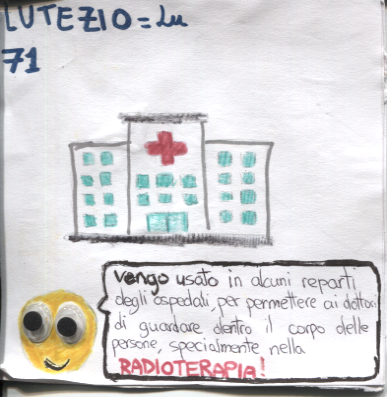 LUTEZIO = Lu
71
Vengo usato in alcuni reparti
degli ospedali, per permettere ai dottori
di guardare dentro il corpo delle
persone, specialmente nella
RADIOTERAPIA!